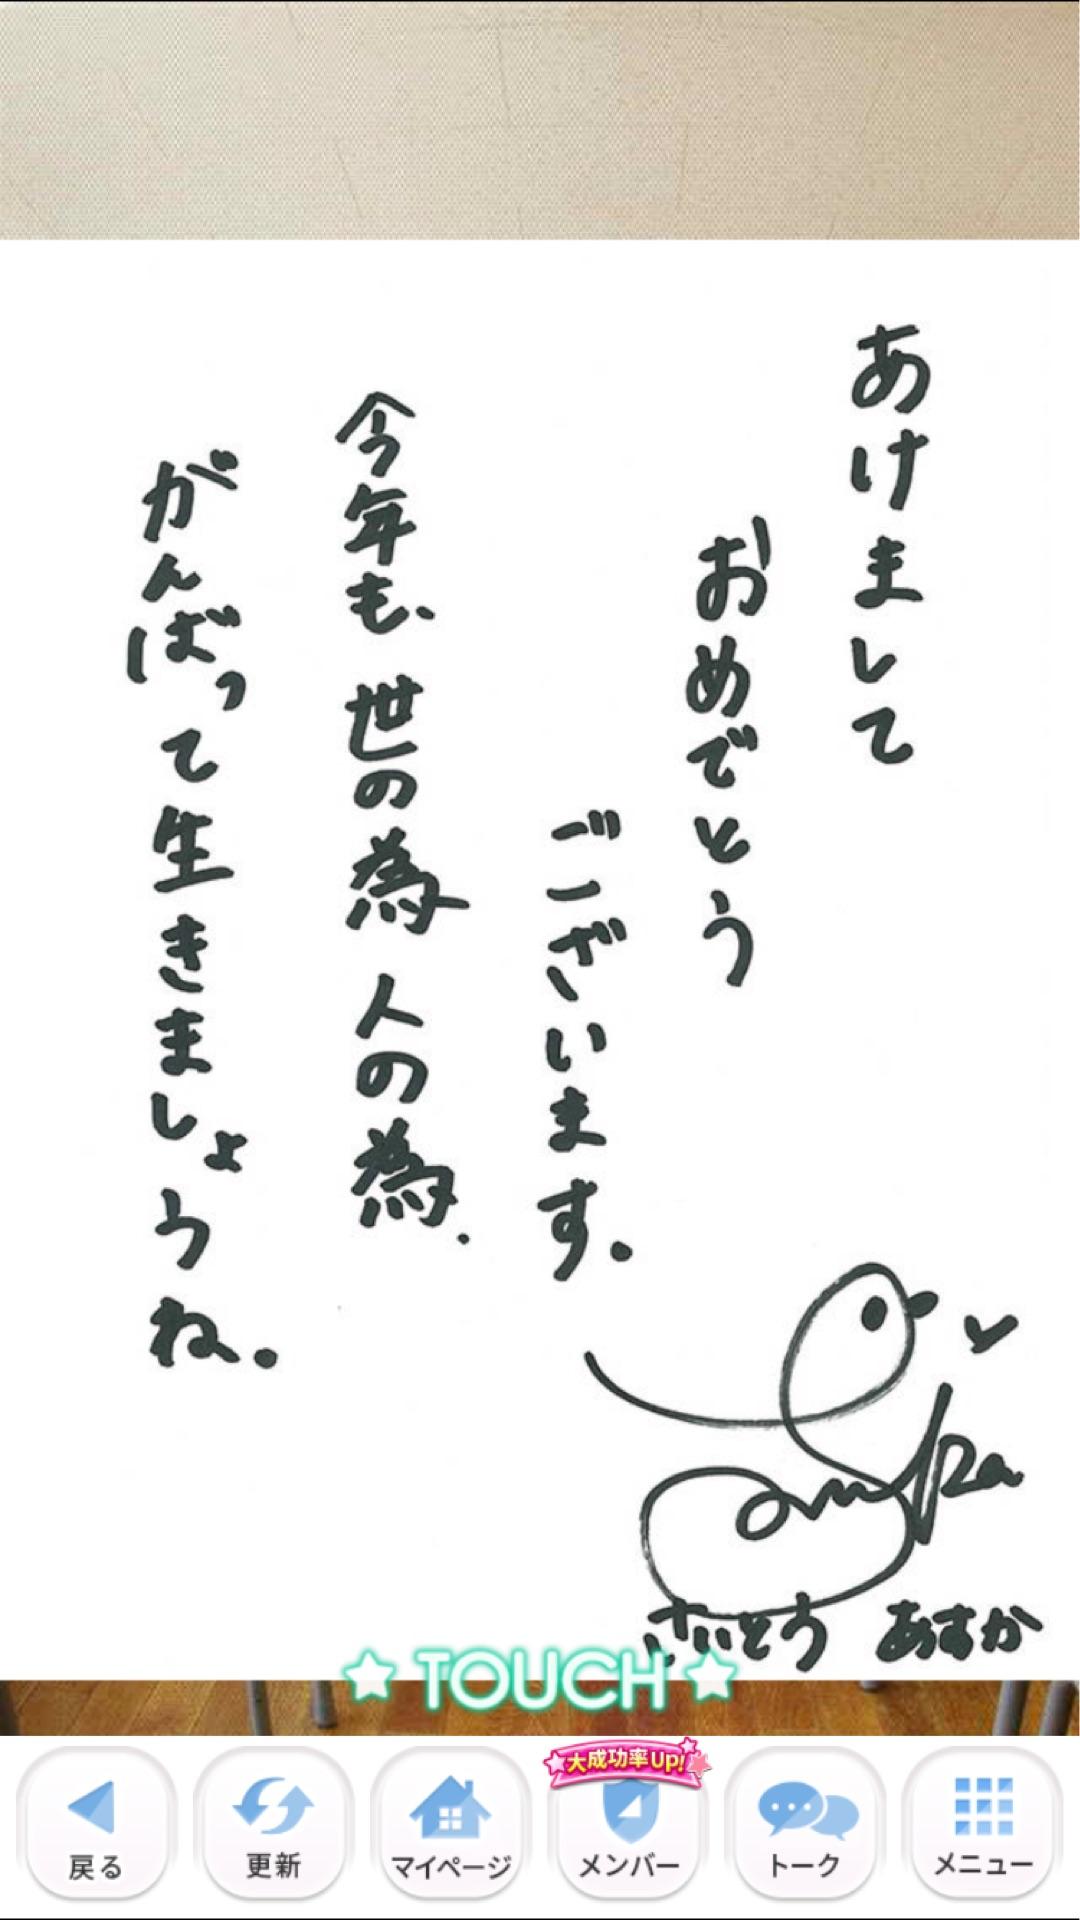 あけまして
おめでとう
ございます.
今年も、世の為 人の為.
がんばって生きましょうね.
さいとう あすか
TOUCH
大成功率Up!
戻る
更新
マイページ
メンバー
トーク
メニュー